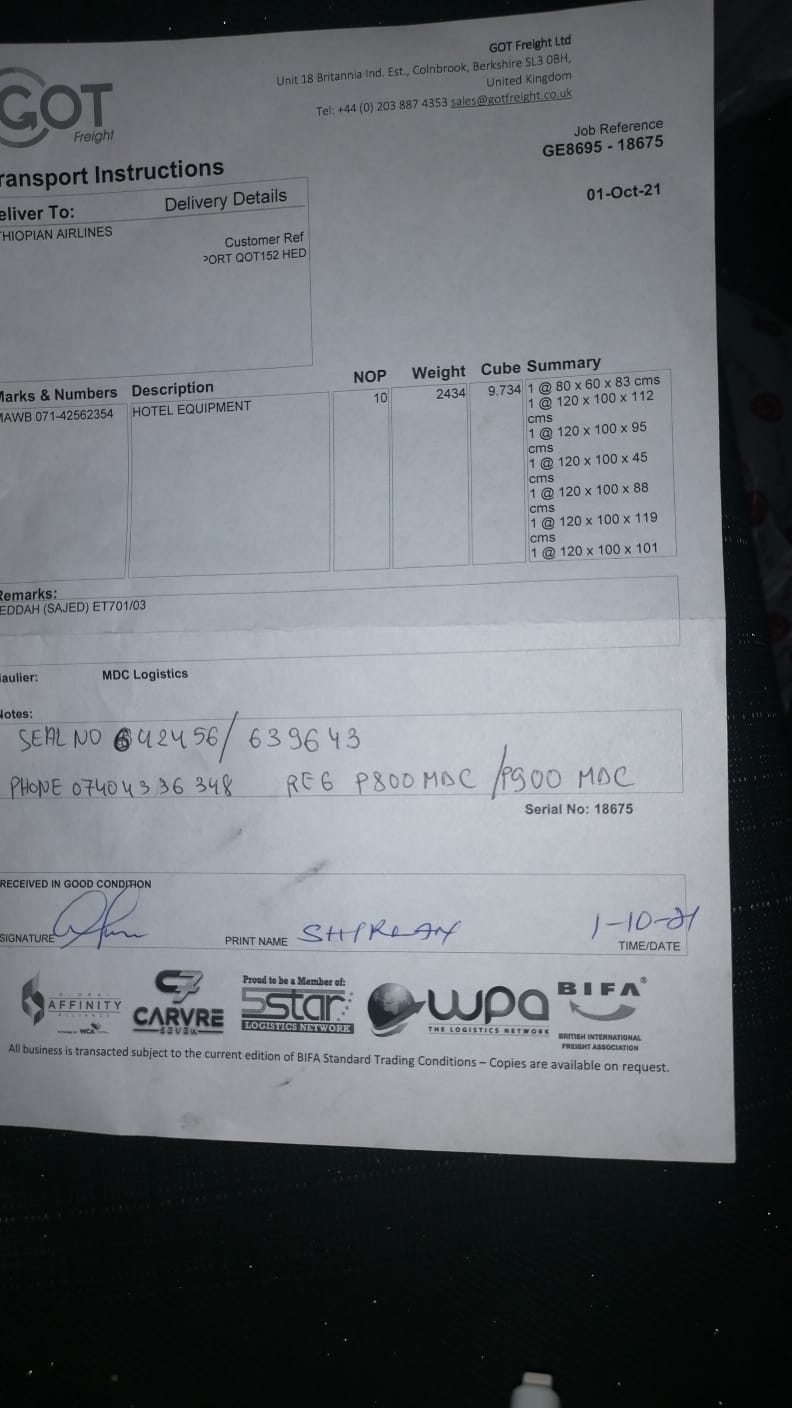 GOT Freight Ltd
Unit 18 Britannia Ind. Est., Colnbrook, Berkshire SL3 0BH,
United Kingdom
Tel: +44 (0) 203 887 4353 sales@gotfreight.co.uk
GOT
Freight
Job Reference
GE8695 - 18675
ransport Instructions
01-Oct-21
eliver To: Delivery Details
THIOPIAN AIRLINES
Customer Ref
PORT QOT152 HED
Marks & Numbers Description NOP Weight Cube Summary
MAWB 071-42562354 HOTEL EQUIPMENT 10 2434 9.734 1 @ 80 x 60 x 83 cms
1 @ 120 x 100 x 112
cms
1 @ 120 x 100 x 95
cms
1 @ 120 x 100 x 45
cms
1 @ 120 x 100 x 88
cms
1 @ 120 x 100 x 119
cms
1 @ 120 x 100 x 101
Remarks:
EDDAH (SAJED) ET701/03
aulier: MDC Logistics
Notes:
SEAL NO 642456/639643
PHONE 07404336348 REG P800 MDC /P900 MDC
Serial No: 18675
RECEIVED IN GOOD CONDITION
SIGNATURE PRINT NAME 1-10-21
TIME/DATE
GLOBAL
AFFINITY
ALLIANCE
WCA
CARVRE
SEVEN
Proud to be a Member of:
5star
LOGISTICS NETWORK
wpa
THE LOGISTICS NETWORK
BIFA
BRITISH INTERNATIONAL
FREIGHT ASSOCIATION
All business is transacted subject to the current edition of BIFA Standard Trading Conditions – Copies are available on request.